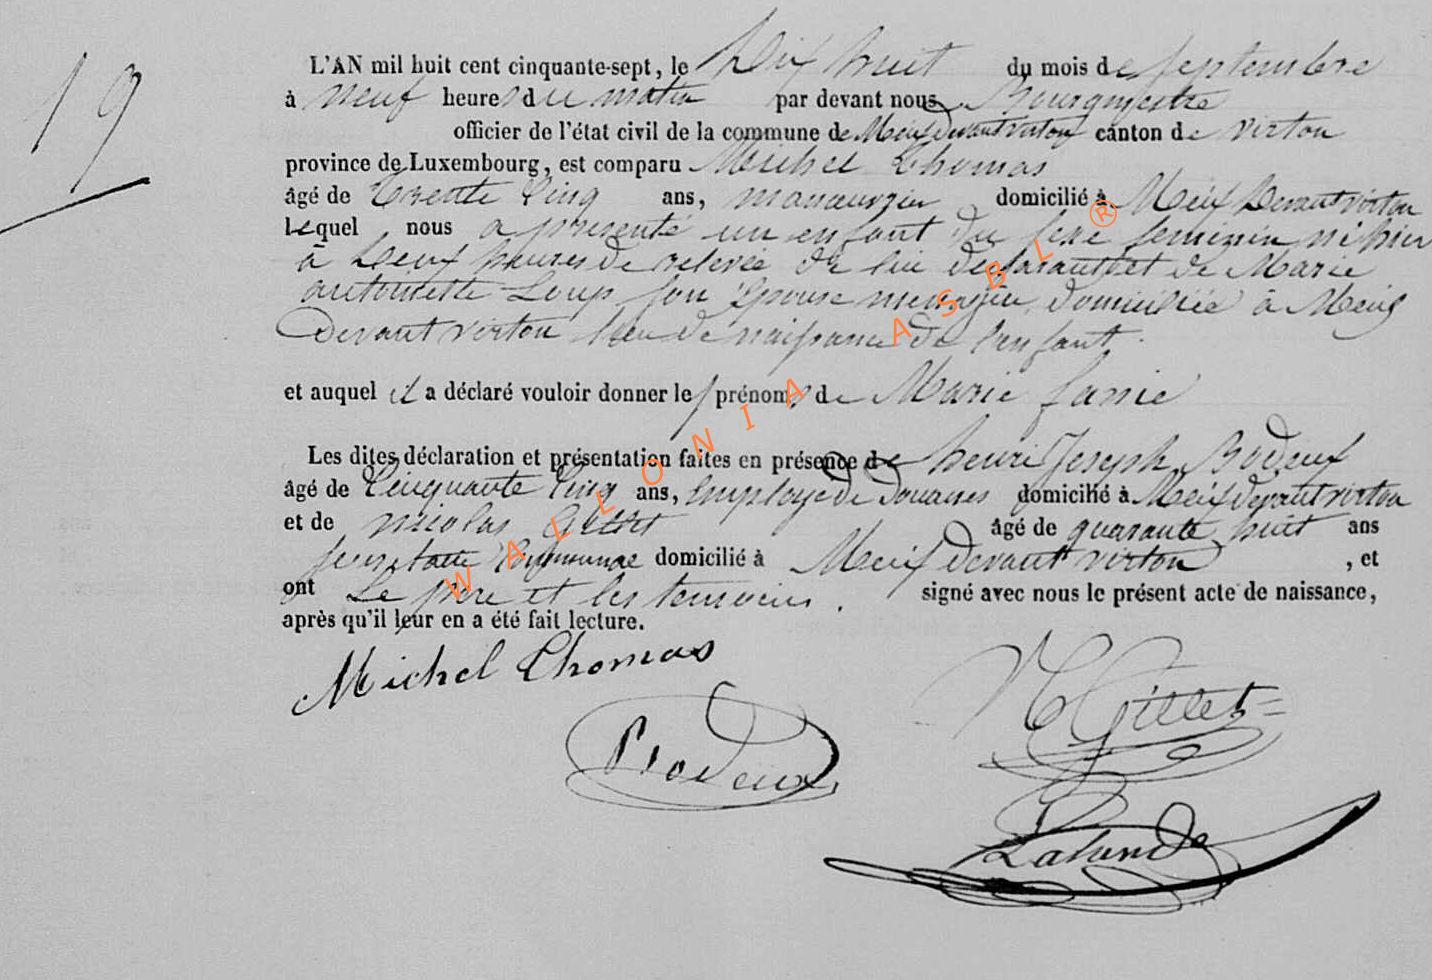 19
L'AN mil huit cent cinquante-sept, le Dix huit du mois de septembre
à neuf heures du matin par devant nous Bourgmestre
officier de l'état civil de la commune de Meix devant virton canton de virton
province de Luxembourg, est comparu Michel Thomas
âgé de Trente Cinq ans, manœuvrier domicilié à Meix Devant virton
lequel nous a présenté un enfant du sexe feminin né hier
à Deux heures de relevée de lui déclarant et de Marie
antoinette Loup son Epouse menagère domiciliée à Meix
Devant virton lieu de naissance de l'enfant.
et auquel il a déclaré vouloir donner les prénoms de Marie fanie
Les dites déclaration et présentation faites en présence de henri Joseph Bodeux
âgé de Cinquante Cinq ans, Employé de Douanes domicilié à Meix devant virton
et de nicolas Gillet âgé de quarante huit ans
secretaire Communal domicilié à Meix devant virton , et
ont Le père et les temoins . signé avec nous le présent acte de naissance,
après qu'il leur en a été fait lecture.
Michel Thomas
N Gillet
Bodeux
Lalande
WALLONIA ASBL ®